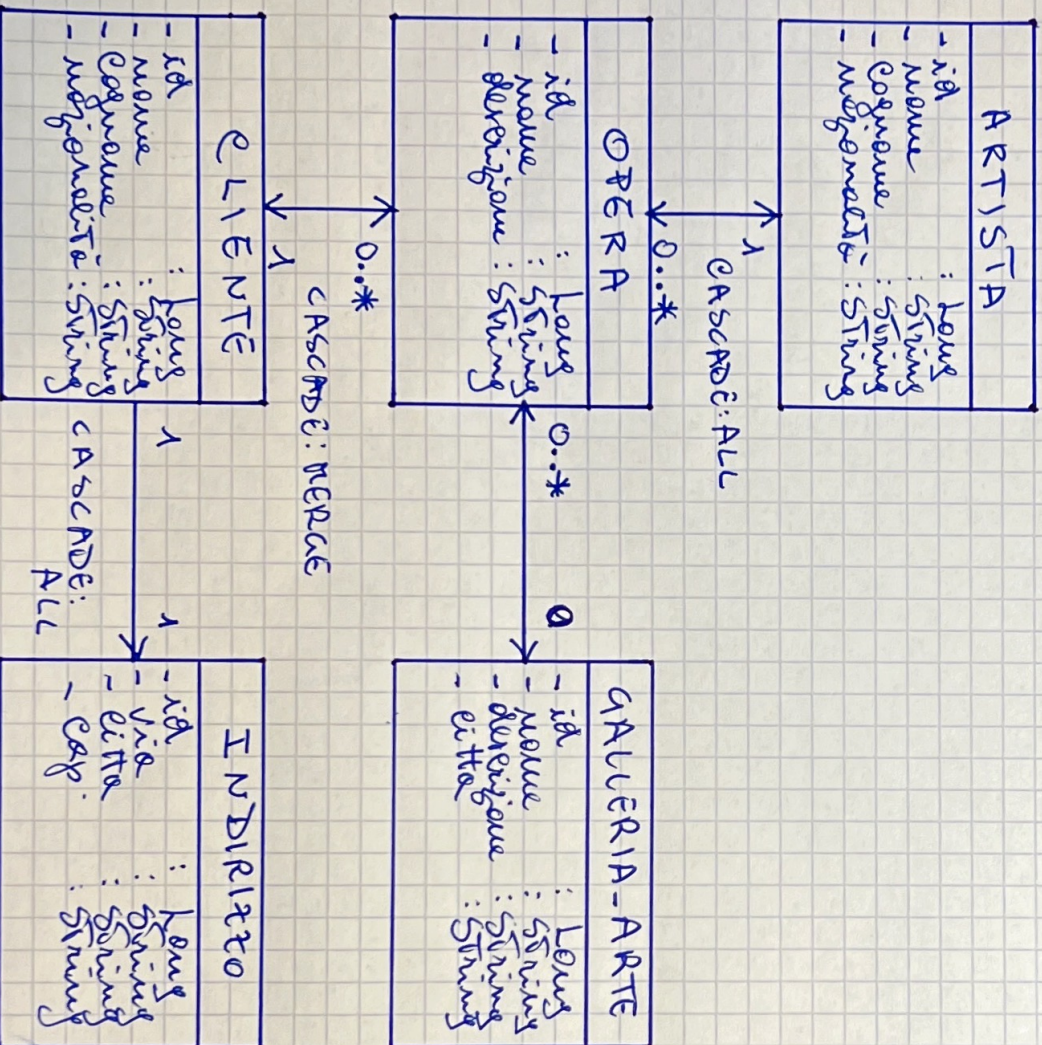 ARTISTA
- id : Long
- nome : String
- cognome : String
- nazionalità : String
1
CASCADE: ALL
0..*
OPERA
- id : Long
- nome : String
- descrizione : String
0..*
0
GALLERIA_ARTE
- id : Long
- nome : String
- descrizione : String
- citta : String
0..*
CASCADE: MERGE
1
CLIENTE
- id : Long
- nome : String
- cognome : String
- nazionalità : String
1
CASCADE:
ALL
1
INDIRIZZO
- id : Long
- via : String
- citta : String
- cap. : String